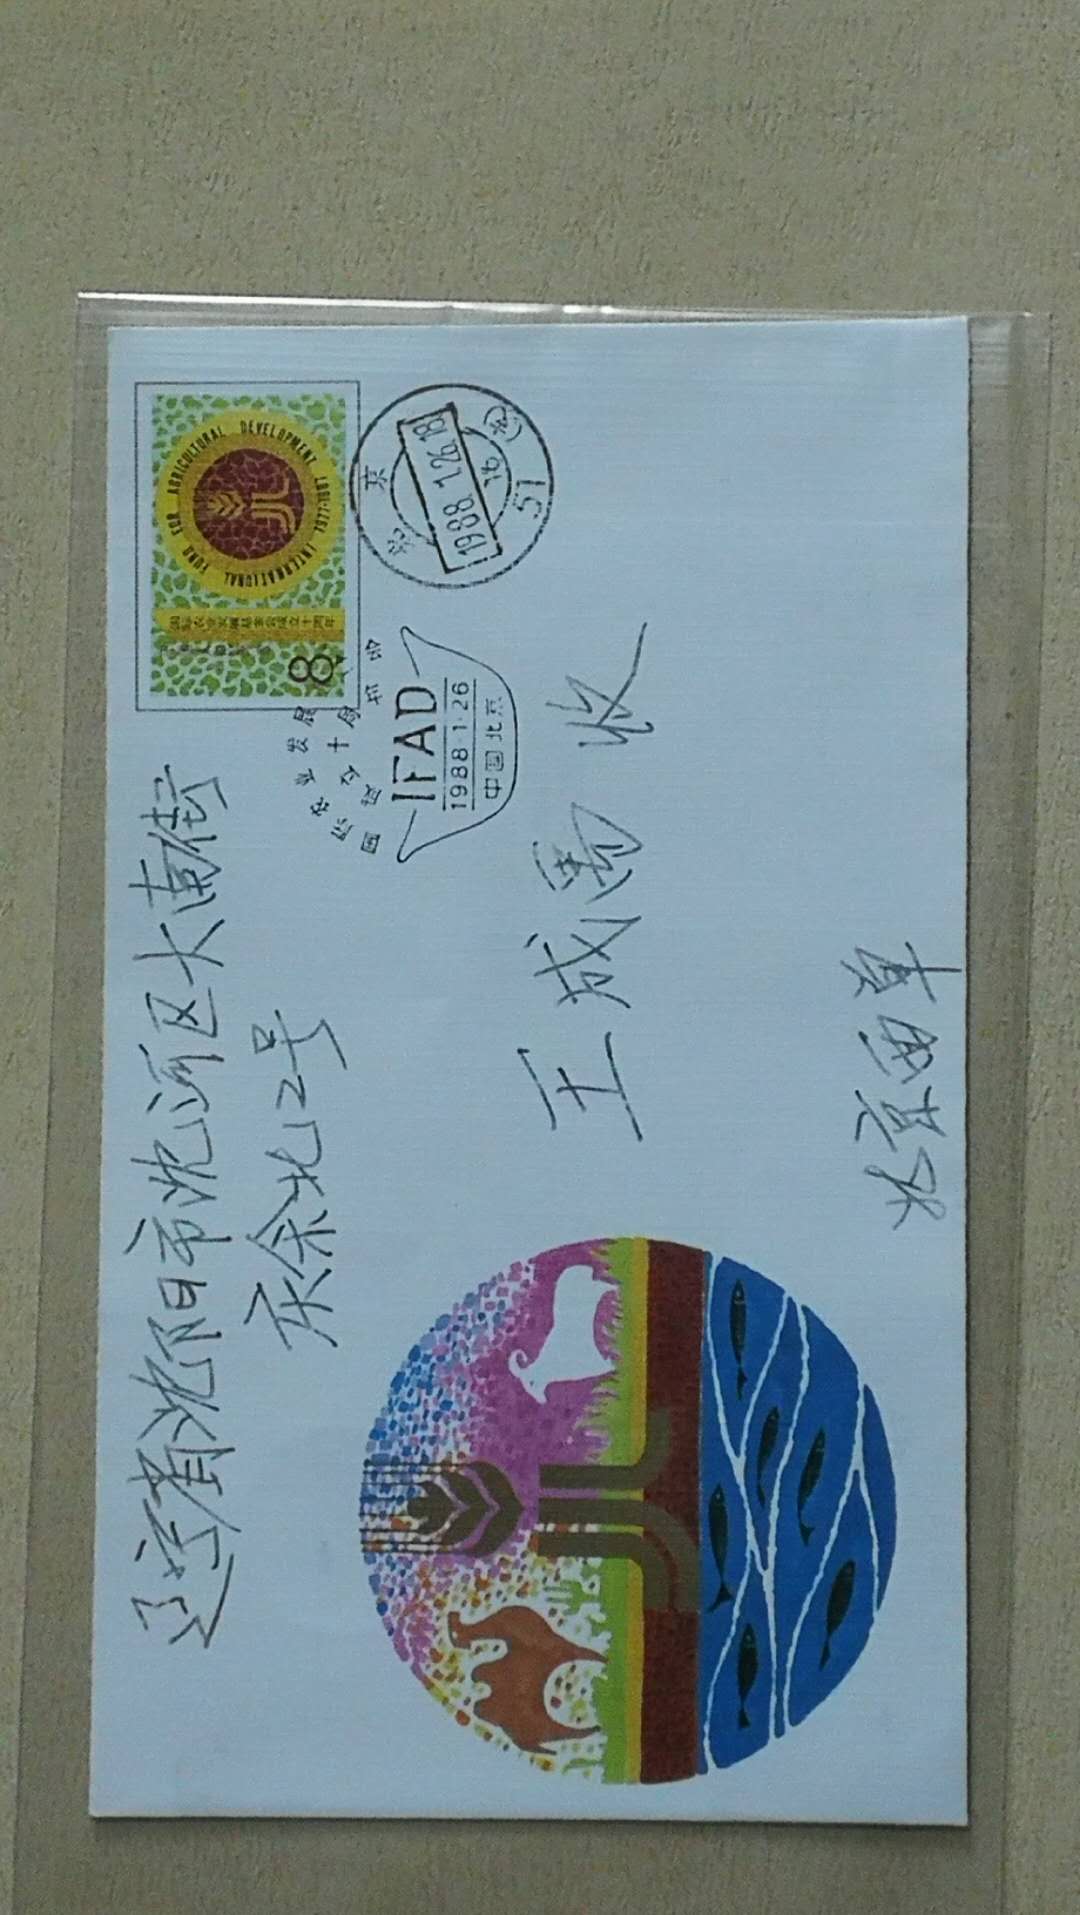 辽宁省沈阳市沈河区大南街
庆余北12号
王成 收
INTERNATIONAL FUND FOR AGRICULTURAL DEVELOPMENT 1977-1987
国际农业发展基金会成立十周年
8
国际农业发展
成立十周
IFAD
1988·1·26
中国北京
北京
1988.1.26.18
51